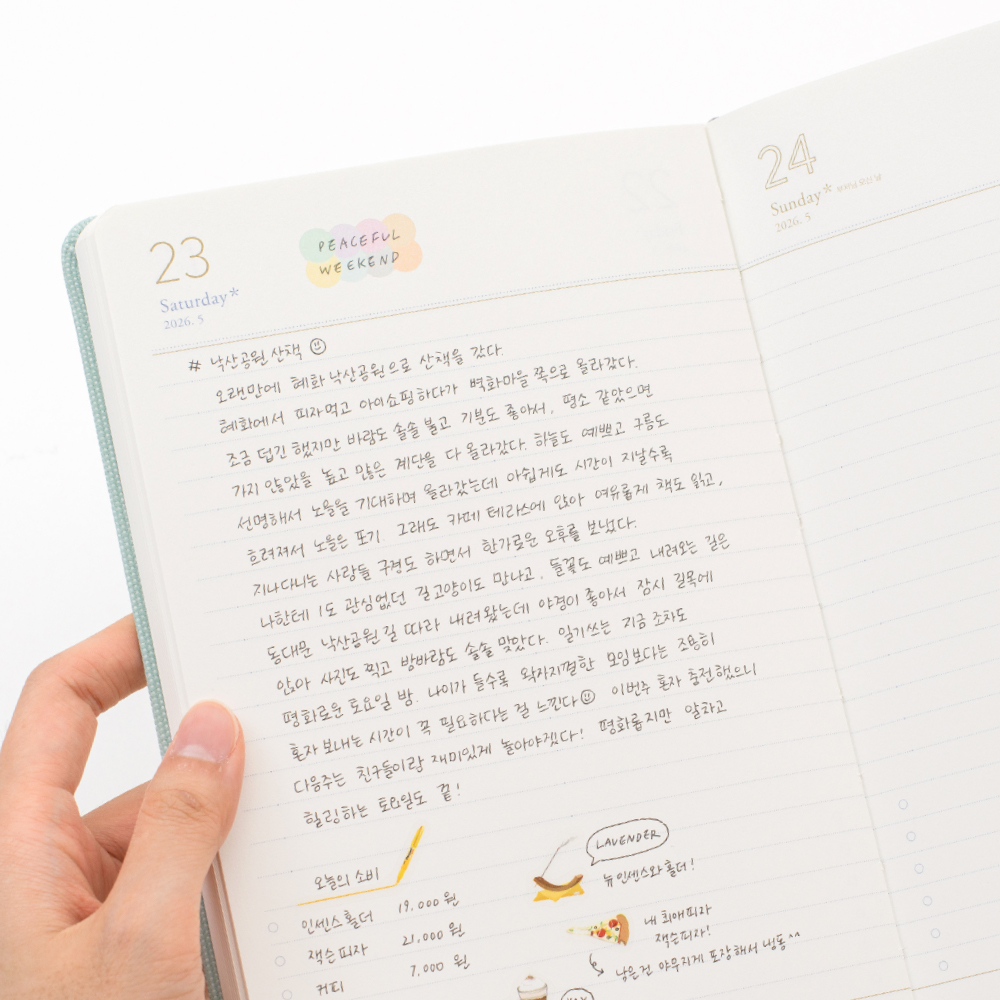 23
Saturday*
2026. 5
PEACEFUL
WEEKEND
# 낙산공원 산책
오랜만에 혜화 낙산공원으로 산책을 갔다.
혜화에서 피자먹고 아이쇼핑하다가 벽화마을 쪽으로 올라갔다.
조금 덥긴 했지만 바람도 솔솔 불고 기분도 좋아서, 평소 같았으면
가지 않았을 높고 많은 계단을 다 올라갔다. 하늘도 예쁘고 구름도
선명해서 노을을 기대하며 올라갔는데 아쉽게도 시간이 지날수록
흐려져서 노을은 포기 그래도 카페 테라스에 앉아 여유롭게 책도 읽고,
지나다니는 사람들 구경도 하면서 한가로운 오후를 보냈다.
나한테 1도 관심없던 길고양이도 만나고, 들꽃도 예쁘고 내려오는 길은
동대문 낙산공원길 따라 내려왔는데 야경이 좋아서 잠시 길목에
앉아 사진도 찍고 밤바람도 솔솔 맞았다. 일기쓰는 지금 조차도
평화로운 토요일 밤. 나이가 들수록 왁자지껄한 모임보다는 조용히
혼자 보내는 시간이 꼭 필요하다는 걸 느낀다 이번주 혼자 충전했으니
다음주는 친구들이랑 재미있게 놀아야겠다! 평화롭지만 알차고
힐링하는 토요일도 끝!
오늘의 소비
인센스홀더 19,000 원
잭슨피자 21,000 원
커피 7,000 원
LAVENDER
뉴인센스와 홀더!
내 최애피자
잭슨피자!
남은건 야무지게 포장해서 냉동^^
24
Sunday*
2026. 5